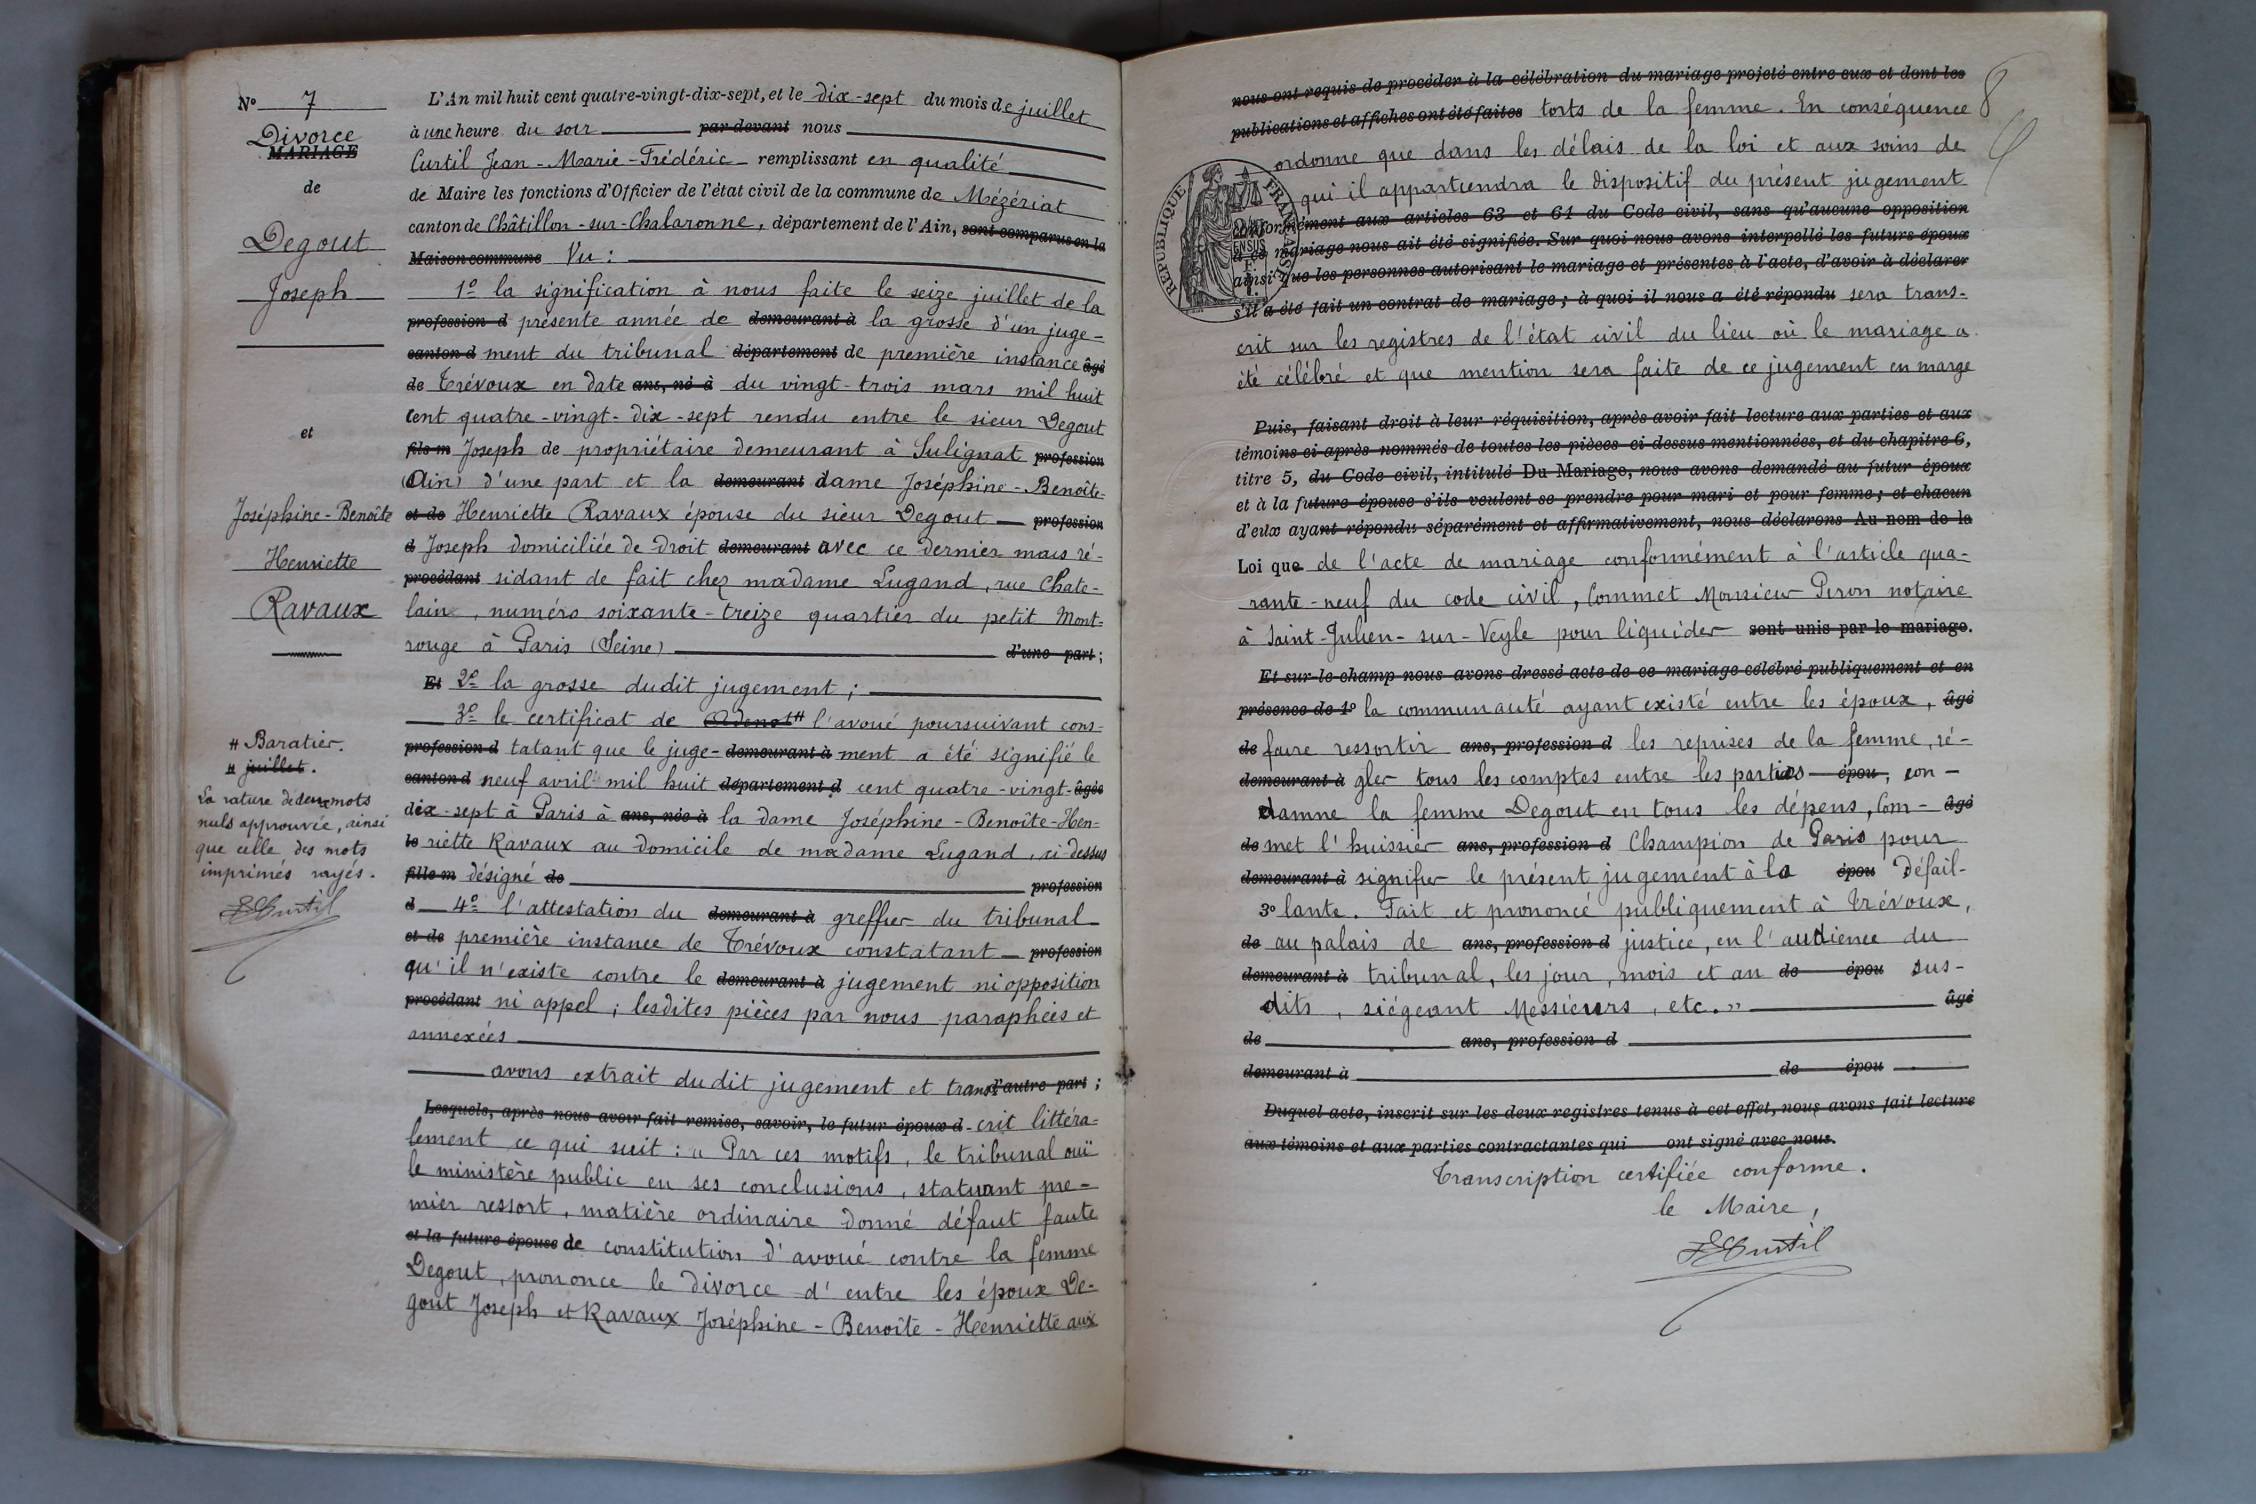 N° 7
Divorce
MARIAGE
de
Degout
Joseph
et
Joséphine-Benoîte
Henriette
Ravaux
# Baratier.
# juillet.
La rature de deux mots
nuls approuvée, ainsi
que celle des mots
imprimés rayés.
Curtil
L'An mil huit cent quatre-vingt-dix-sept, et le dix-sept du mois de juillet
à une heure du soir par-devant nous
Curtil Jean-Marie-Frédéric remplissant en qualité
de Maire les fonctions d'Officier de l'état civil de la commune de Mézériat
canton de Châtillon-sur-Chalaronne, département de l'Ain, sont comparus en la
Maison commune Vu :
1° la signification à nous faite le seize juillet de la
profession d présente année de demeurant à la grosse d'un juge-
canton d ment du tribunal département de première instance âgé
de Trévoux en date ans, né à du vingt-trois mars mil huit
cent quatre-vingt-dix-sept rendu entre le sieur Degout
fils m Joseph de propriétaire demeurant à Sulignat profession
(Ain) d'une part et la demeurant dame Joséphine-Benoîte-
et de Henriette Ravaux épouse du sieur Degout profession
d Joseph domiciliée de droit demeurant avec ce dernier mais ré-
procédant sidant de fait chez madame Lugand, rue Chate-
lain, numéro soixante-treize quartier du petit Mont-
rouge à Paris (Seine) d'une part ;
Et 2° la grosse dudit jugement ;
3° le certificat de Adenot # l'avoué poursuivant cons-
profession d tatant que le juge- demeurant à ment a été signifié le
canton d neuf avril mil huit département d cent quatre-vingt- âgée
dix-sept à Paris à ans, née à la dame Joséphine-Benoîte-Hen-
le riette Ravaux au domicile de madame Lugand, ci-dessus
fille m désigné de profession
d 4° l'attestation du demeurant à greffier du tribunal
et de première instance de Trévoux constatant profession
qu'il n'existe contre le demeurant à jugement ni opposition
procédant ni appel ; lesdites pièces par nous paraphées et
annexées
avons extrait dudit jugement et trans d'autre part ;
Lesquels, après nous avoir fait remise, savoir, le futur époux d -crit littéra-
lement ce qui suit : « Par ces motifs, le tribunal ouï
le ministère public en ses conclusions, statuant pre-
mier ressort, matière ordinaire donné défaut faute
et la future épouse de constitution d'avoué contre la femme
Degout, prononce le divorce d'entre les époux De-
gout Joseph et Ravaux Joséphine-Benoîte-Henriette aux
nous ont requis de procéder à la célébration du mariage projeté entre eux et dont les
publications et affiches ont été faites torts de la femme. En conséquence
ordonne que dans les délais de la loi et aux soins de
qui il appartiendra le dispositif du présent jugement
conformément aux articles 63 et 64 du Code civil, sans qu'aucune opposition
à ce mariage nous ait été signifiée. Sur quoi nous avons interpellé les futurs époux
ainsi que les personnes autorisant le mariage et présentes à l'acte, d'avoir à déclarer
s'il a été fait un contrat de mariage ; à quoi il nous a été répondu sera trans-
crit sur les registres de l'état civil du lieu où le mariage a
été célébré et que mention sera faite de ce jugement en marge
Puis, faisant droit à leur réquisition, après avoir fait lecture aux parties et aux
témoins ci-après nommés de toutes les pièces ci-dessus mentionnées, et du chapitre 6,
titre 5, du Code civil, intitulé Du Mariage, nous avons demandé au futur époux
et à la future épouse s'ils veulent se prendre pour mari et pour femme ; et chacun
d'eux ayant répondu séparément et affirmativement, nous déclarons Au nom de la
Loi que de l'acte de mariage conformément à l'article qua-
rante-neuf du code civil, Commet Monsieur Piron notaire
à Saint-Julien-sur-Veyle pour liquider sont unis par le mariage.
Et sur-le-champ nous avons dressé acte de ce mariage célébré publiquement et en
présence de 1° la communauté ayant existé entre les époux, âgé
de faire ressortir ans, profession d les reprises de la femme, ré-
demeurant à gler tous les comptes entre les parties épou, con-
damne la femme Degout en tous les dépens, Com- âgé
de met l'huissier ans, profession d Champion de Paris pour
demeurant à signifier le présent jugement à la épou défail-
3° lante. Fait et prononcé publiquement à Trévoux,
de au palais de ans, profession d justice, en l'audience du
demeurant à tribunal, les jour, mois et an de épou sus-
dits, siégeant Messieurs, etc. » âgé
de ans, profession d
demeurant à de épou
Duquel acte, inscrit sur les deux registres tenus à cet effet, nous avons fait lecture
aux témoins et aux parties contractantes qui ont signé avec nous.
Transcription certifiée conforme.
le Maire,
Curtil
RÉPUBLIQUE FRANÇAISE